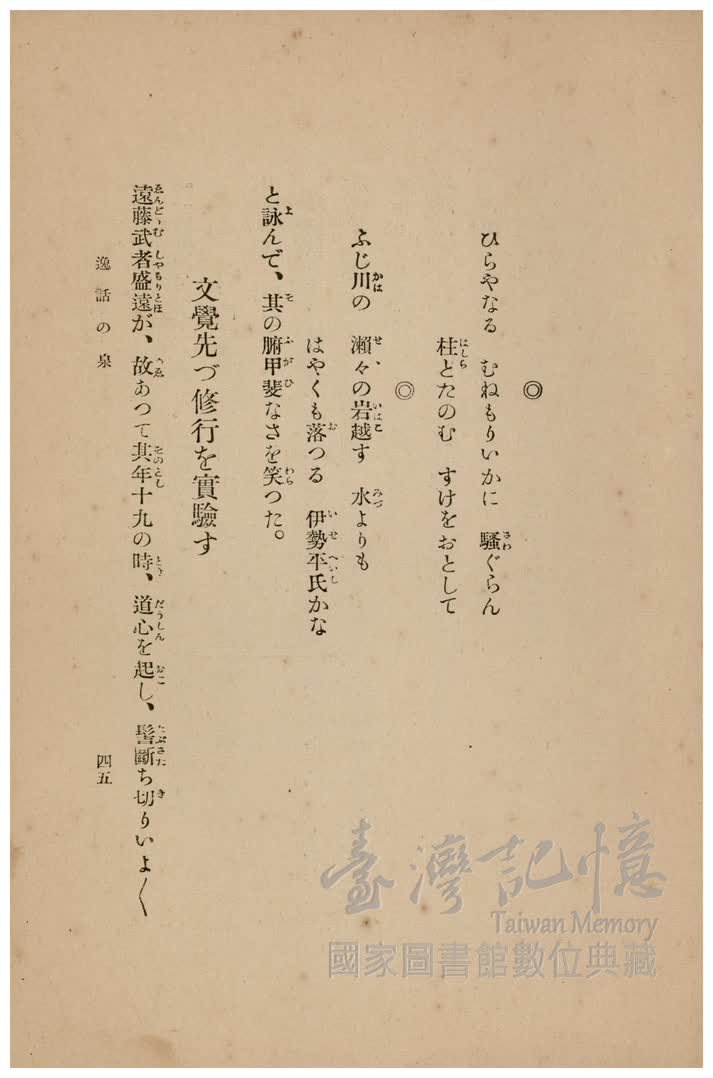 ◎
ひらやなる　むねもりいかに　騷ぐらん
柱とたのむ　すけをおとして
◎
ふじ川の　瀬々の岩越す　水よりも
はやくも落つる　伊勢平氏かな
と詠んで、其の腑甲斐なさを笑つた。
文覺先づ修行を實驗す
遠藤武者盛遠が、故あつて其年十九の時、道心を起し、髻斷ち切りいよ〱
逸話の泉
四五
臺灣記憶
Taiwan Memory
國家圖書館數位典藏